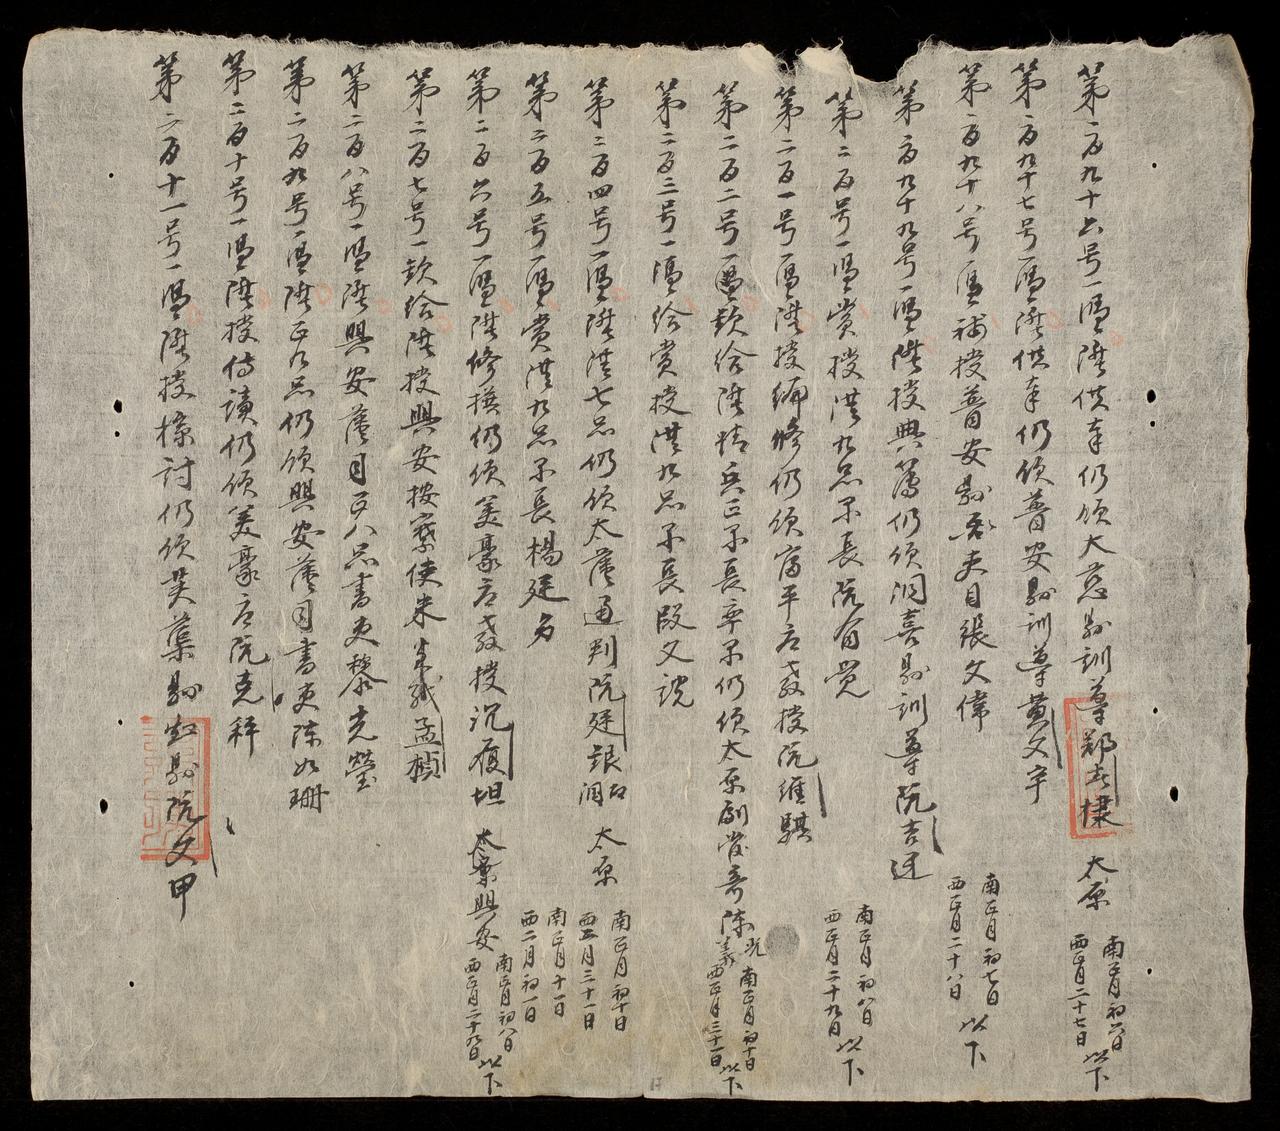 第一百九十六号一憑陞供奉仍領大慈縣訓導鄭春棣 太原 南正月初六日 西正月二十七日 以下
第一百九十七号一憑陞供奉仍領普安縣訓導黃文宇
第一百九十八号一憑補授普安縣吏目張文偉 南正月初七日 西正月二十八日 以下
第一百九十九号一憑陞授典簿仍領洞喜縣訓導阮吉迓
第二百号一憑賞授從九品隊長阮有覺 南正月初八日 西正月二十九日 以下
第二百一号一憑陞授編修仍領富平府教授阮維騏
第二百二号一憑欵給陞精兵正隊長率隊仍領太原副管奇陳光義 南正月初十日 西正月三十一日 以下
第二百三号一憑給賞授從九品隊長段文說
第二百四号一憑陞從七品仍領太原通判阮廷銀 太原 南正月初十日 西正月三十一日
第二百五号一憑賞從九品隊長楊廷名 南正月十一日 西二月初一日
第二百六号一憑陞修撰仍領美豪府教授沉履坦 太原興安 南正月初八日 西正月二十九日 以下
第二百七号一欵給陞授興安按察使朱孟楨
第二百八号一憑陞興安藩司正八品書吏黎光瑩
第二百九号一憑陞正九品仍領興安藩司書吏陳如珊
第二百十号一憑陞授侍讀仍領美豪府阮克秤
第二百十一号一憑陞授檢討仍領芙蕖縣知縣阮文甲